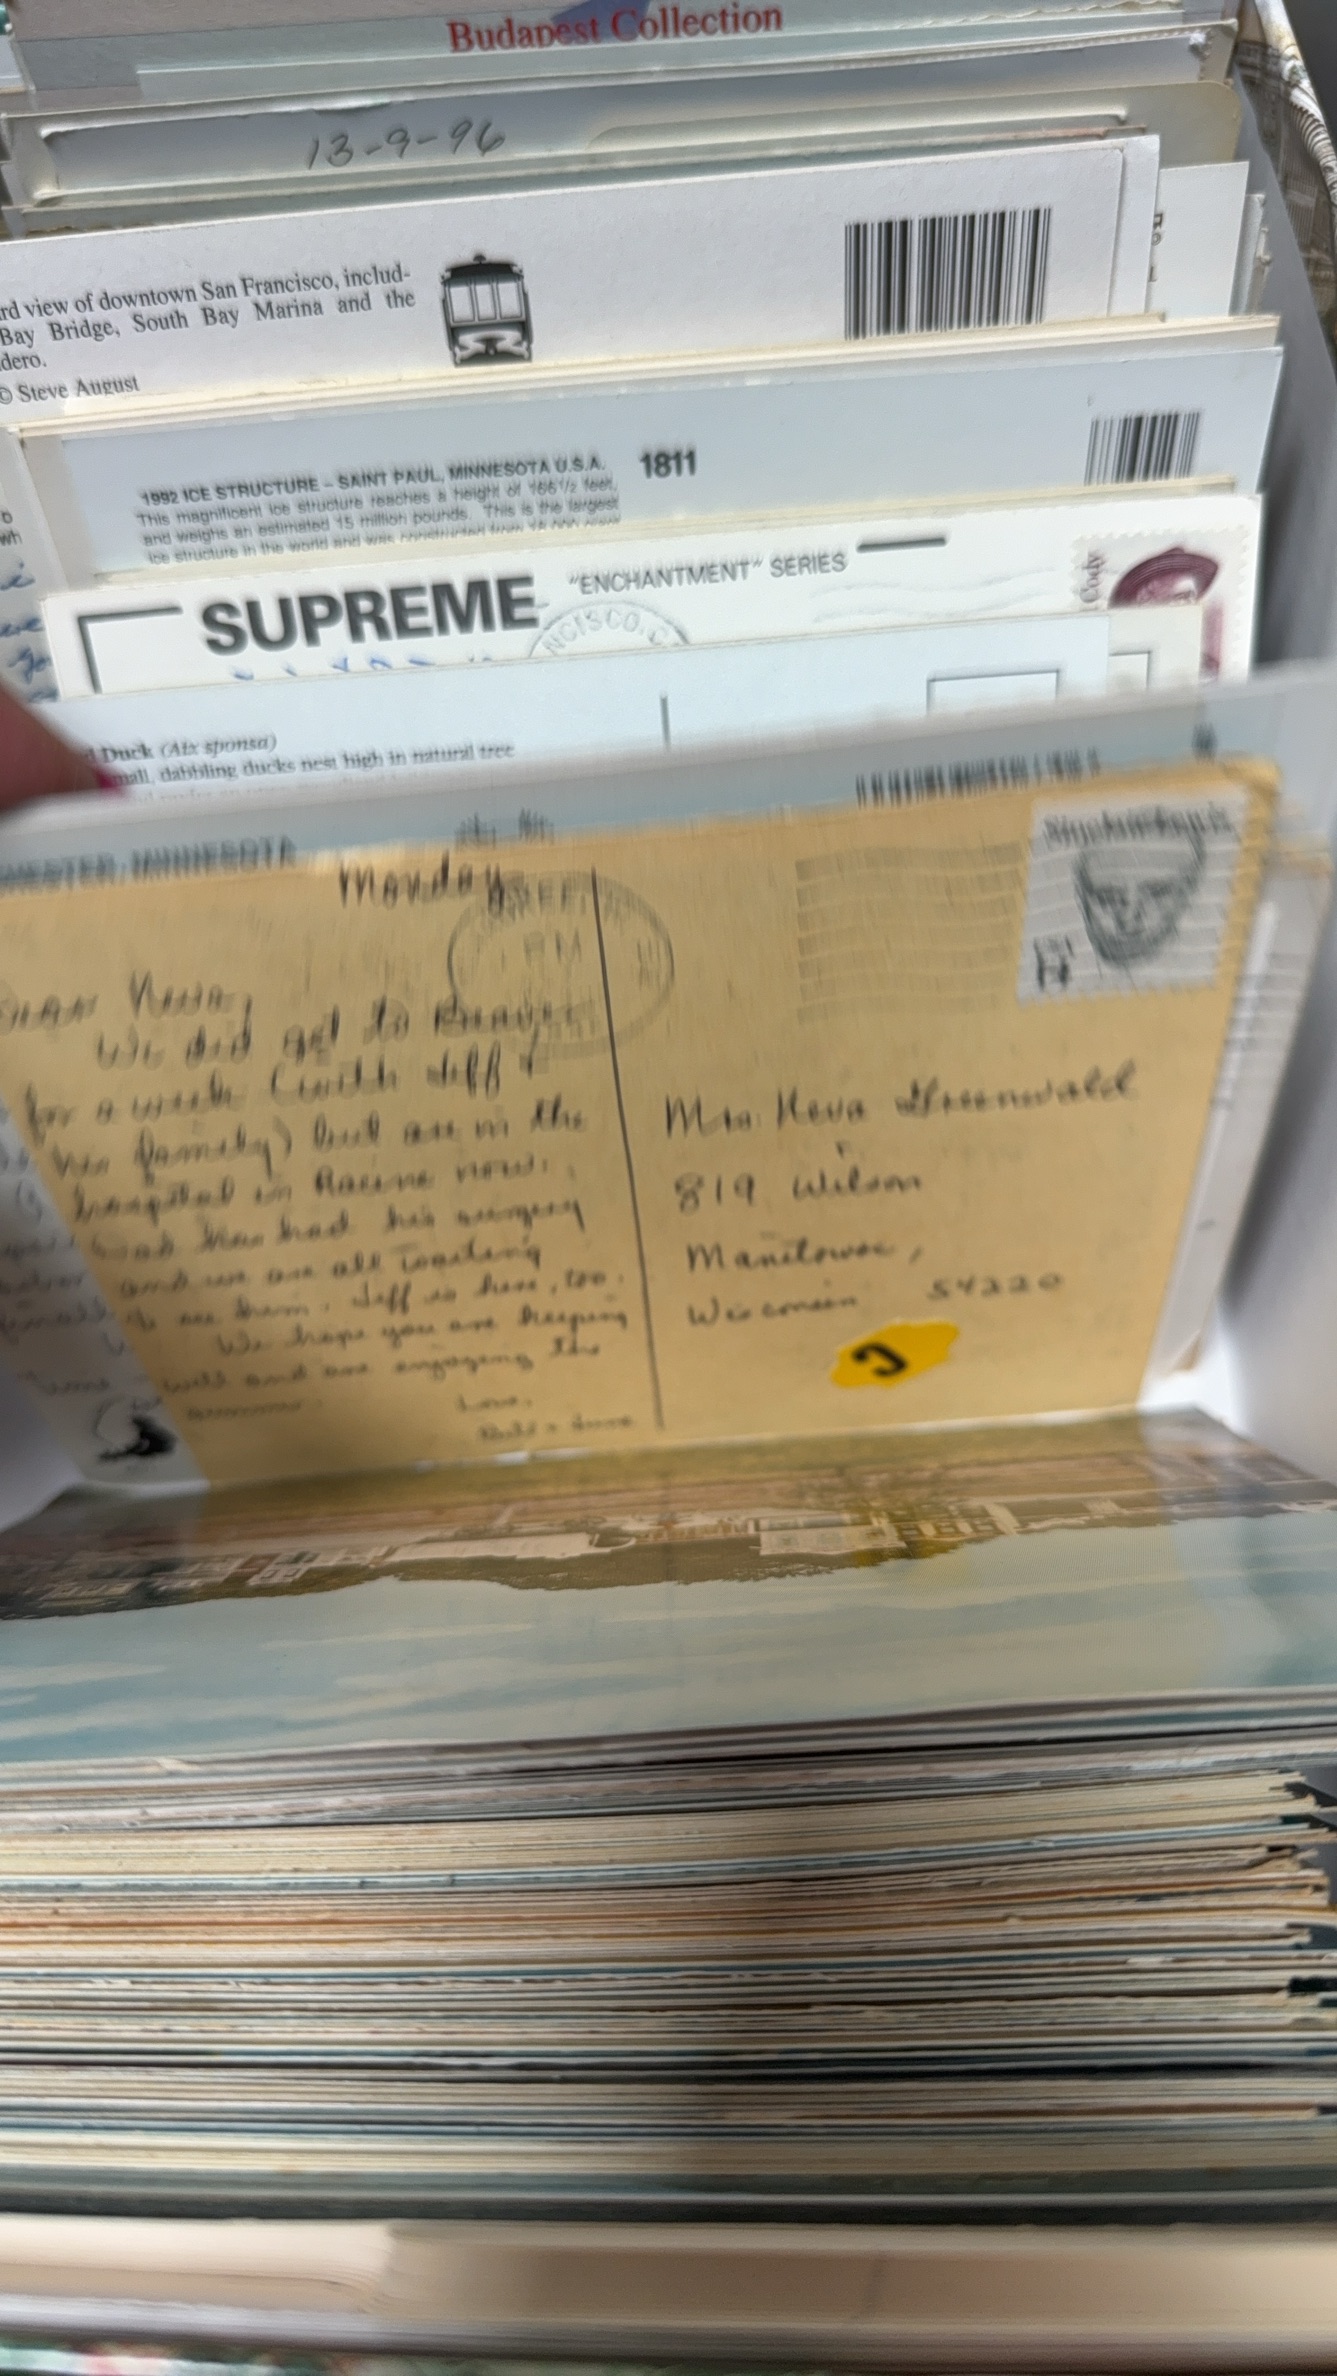 Budapest Collection
13-9-96
rd view of downtown San Francisco, includ-
Bay Bridge, South Bay Marina and the
dero.
© Steve August
1992 ICE STRUCTURE – SAINT PAUL, MINNESOTA U.S.A. 1811
This magnificent ice structure reaches a height of 166 1/2 feet,
and weighs an estimated 15 million pounds. This is the largest
ice structure in the world and was constructed from
SUPREME "ENCHANTMENT" SERIES
NCISCO, C
Cody
Duck (Aix sponsa)
mall, dabbling ducks nest high in natural tree
HESTER, MINNESOTA
Monday
Dear Neva,
We did get to
for a week (with Jeff &
his family) but are in the
hospital in Racine now.
has had his surgery
and we are all waiting
to see them. Jeff is here, too.
We hope you are keeping
well and are enjoying the
Love,
PM
Mrs. Neva Greenwald
819 Wilson
Manitowoc,
Wisconsin 54220